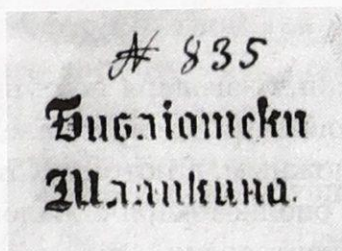 № 835
Библіотеки
Шляпкина.